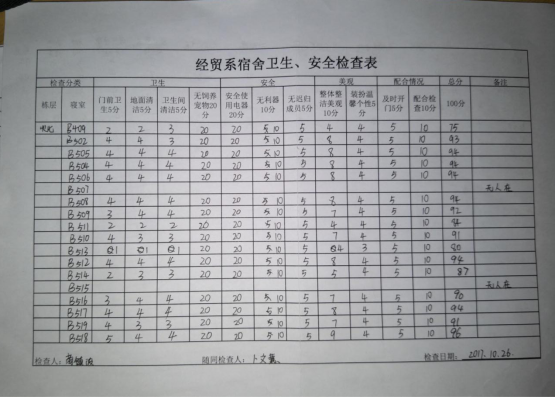 经贸系宿舍卫生、安全检查表
检查分类 卫生 安全 美观 配合情况 总分 备注
栋层 寝室 门前卫生5分 地面清洁5分 卫生间清洁5分 无饲养宠物20分 安全使用电器20分 无利器10分 无迟归成员5分 整体整洁美观10分 装扮温馨个性5分 及时开门5分 配合检查10分 100分
B409 2 2 3 20 20 5 10 5 4 4 5 10 75
B502 4 4 3 20 20 5 10 5 8 4 5 10 93
B505 4 4 4 20 20 5 10 5 8 4 5 10 94
B504 4 4 4 20 20 5 10 5 8 4 5 10 94
B506 4 4 4 20 20 5 10 5 8 4 5 10 94
B507 无人在
B508 4 4 4 20 20 5 10 5 8 4 5 10 94
B509 3 4 4 20 20 5 10 5 7 4 5 10 92
B511 2 2 2 20 20 5 10 5 4 4 5 10
B510 4 3 3 20 20 5 10 5 7 4 5 10 91
B513 1 1 1 20 20 5 10 5 4 3 5 10 80
B512 4 4 4 20 20 5 10 5 8 4 5 10 94
B514 2 3 3 20 20 5 10 5 5 4 5 10 87
B515 无人在
B516 3 4 4 20 20 5 10 5 7 4 5 10 90
B517 4 4 4 20 20 5 10 5 8 4 5 10 94
B519 4 3 3 20 20 5 10 5 7 4 5 10 91
B518 5 4 4 20 20 5 10 5 9 4 5 10 96
检查人: 随同检查人: 卜文 检查日期: 2017.10.26.